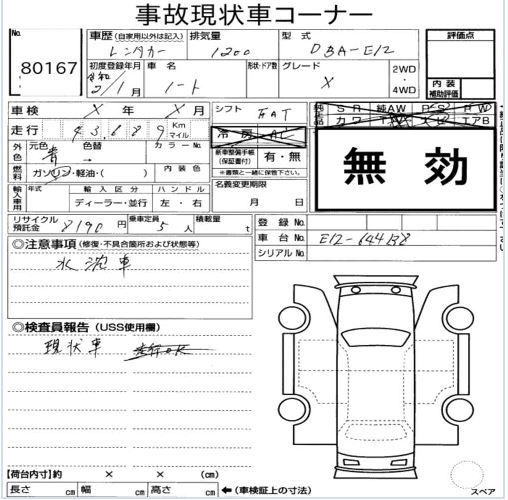 事故現状車コーナー
No. 80167
車歴 (自家用以外は記入) レンタカー
排気量 1200
型式 DBA-E12
評価点
初度登録年月 令和 2/1月
車名 ノート
形状・ドア数
グレード X
2WD・4WD
内装補助評価
車検 X年 X月
シフト
走行 43,689 Km マイル
冷房 AC
純正品 SR 純AW PS PW
カワ エアB
無効
外色 元色 青 色替 カラーNo.
新車整備手帳(保証書付) 有・無
※書類と一緒に保管下さい。
燃料 ガソリン・軽油・( ) 内装色
名義変更期限 月 日
輸入車用 年式 輸入区分 ハンドル
ディーラー・並行 左・右
リサイクル預託金 8190円
乗車定員 5人
積載量 t
登録No.
車台No. E12-644138
シリアルNo.
◎注意事項 (修復・不具合箇所および状態等)
水没車
◎検査員報告 (USS使用欄)
現状車 走行OK
【荷台内寸】約 × × (cm)
長さ cm 幅 cm 高さ cm ←(車検証上の寸法)
スペア